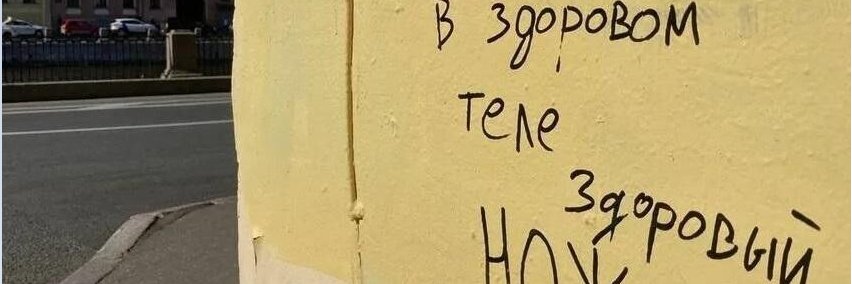 В здоровом
теле
Здоровый
НОЖ